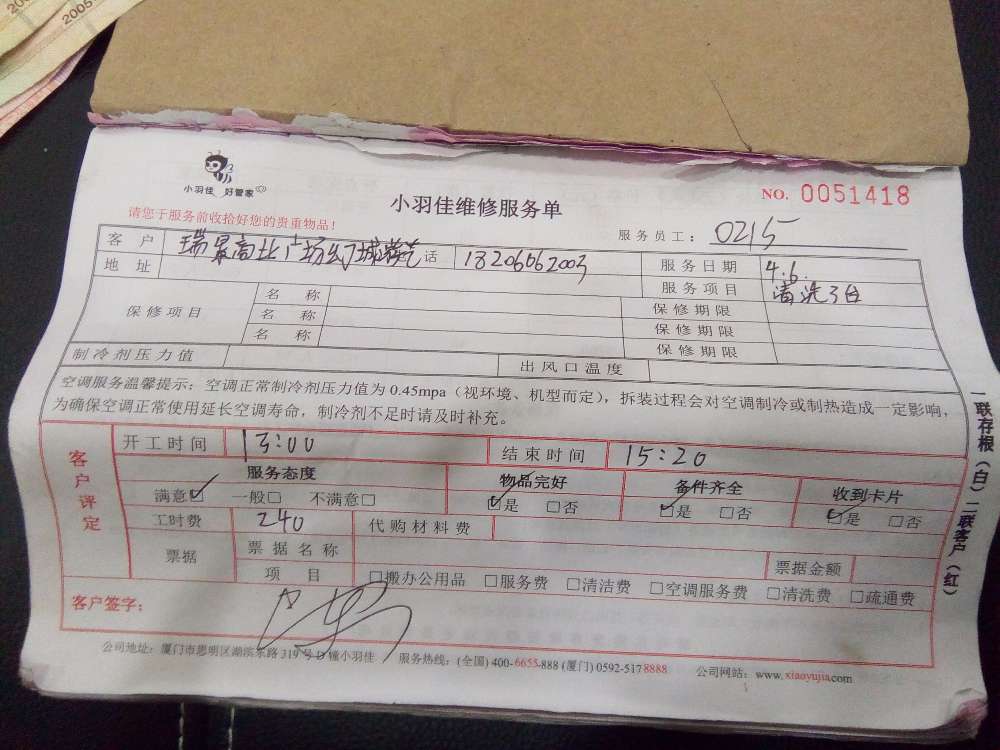 2005
小羽佳 好管家
小羽佳维修服务单
NO. 0051418
请您于服务前收拾好您的贵重物品！
服务员工： 0215
客户 瑞景商业广场 话 18206662003 服务日期 4.6.
地址 服务项目 清洗3台
保修项目 名称 保修期限
名称 保修期限
名称 保修期限
制冷剂压力值 出风口温度
空调服务温馨提示：空调正常制冷剂压力值为 0.45mpa（视环境、机型而定），拆装过程会对空调制冷或制热造成一定影响，
为确保空调正常使用延长空调寿命，制冷剂不足时请及时补充。
客户评定
开工时间 13:00 结束时间 15:20
服务态度 物品完好 备件齐全 收到卡片
满意☑ 一般□ 不满意□ ☑是 □否 ☑是 □否 ☑是 □否
工时费 240 代购材料费
票据 票据名称 票据金额
项目 □搬办公用品 □服务费 □清洁费 □空调服务费 □清洗费 □疏通费
客户签字：
公司地址：厦门市思明区湖滨东路 319 号 D 幢小羽佳 服务热线：(全国) 400-6655-888 (厦门) 0592-5178888 公司网站：www.xiaoyujia.com
一联存根（白）二联客户（红）